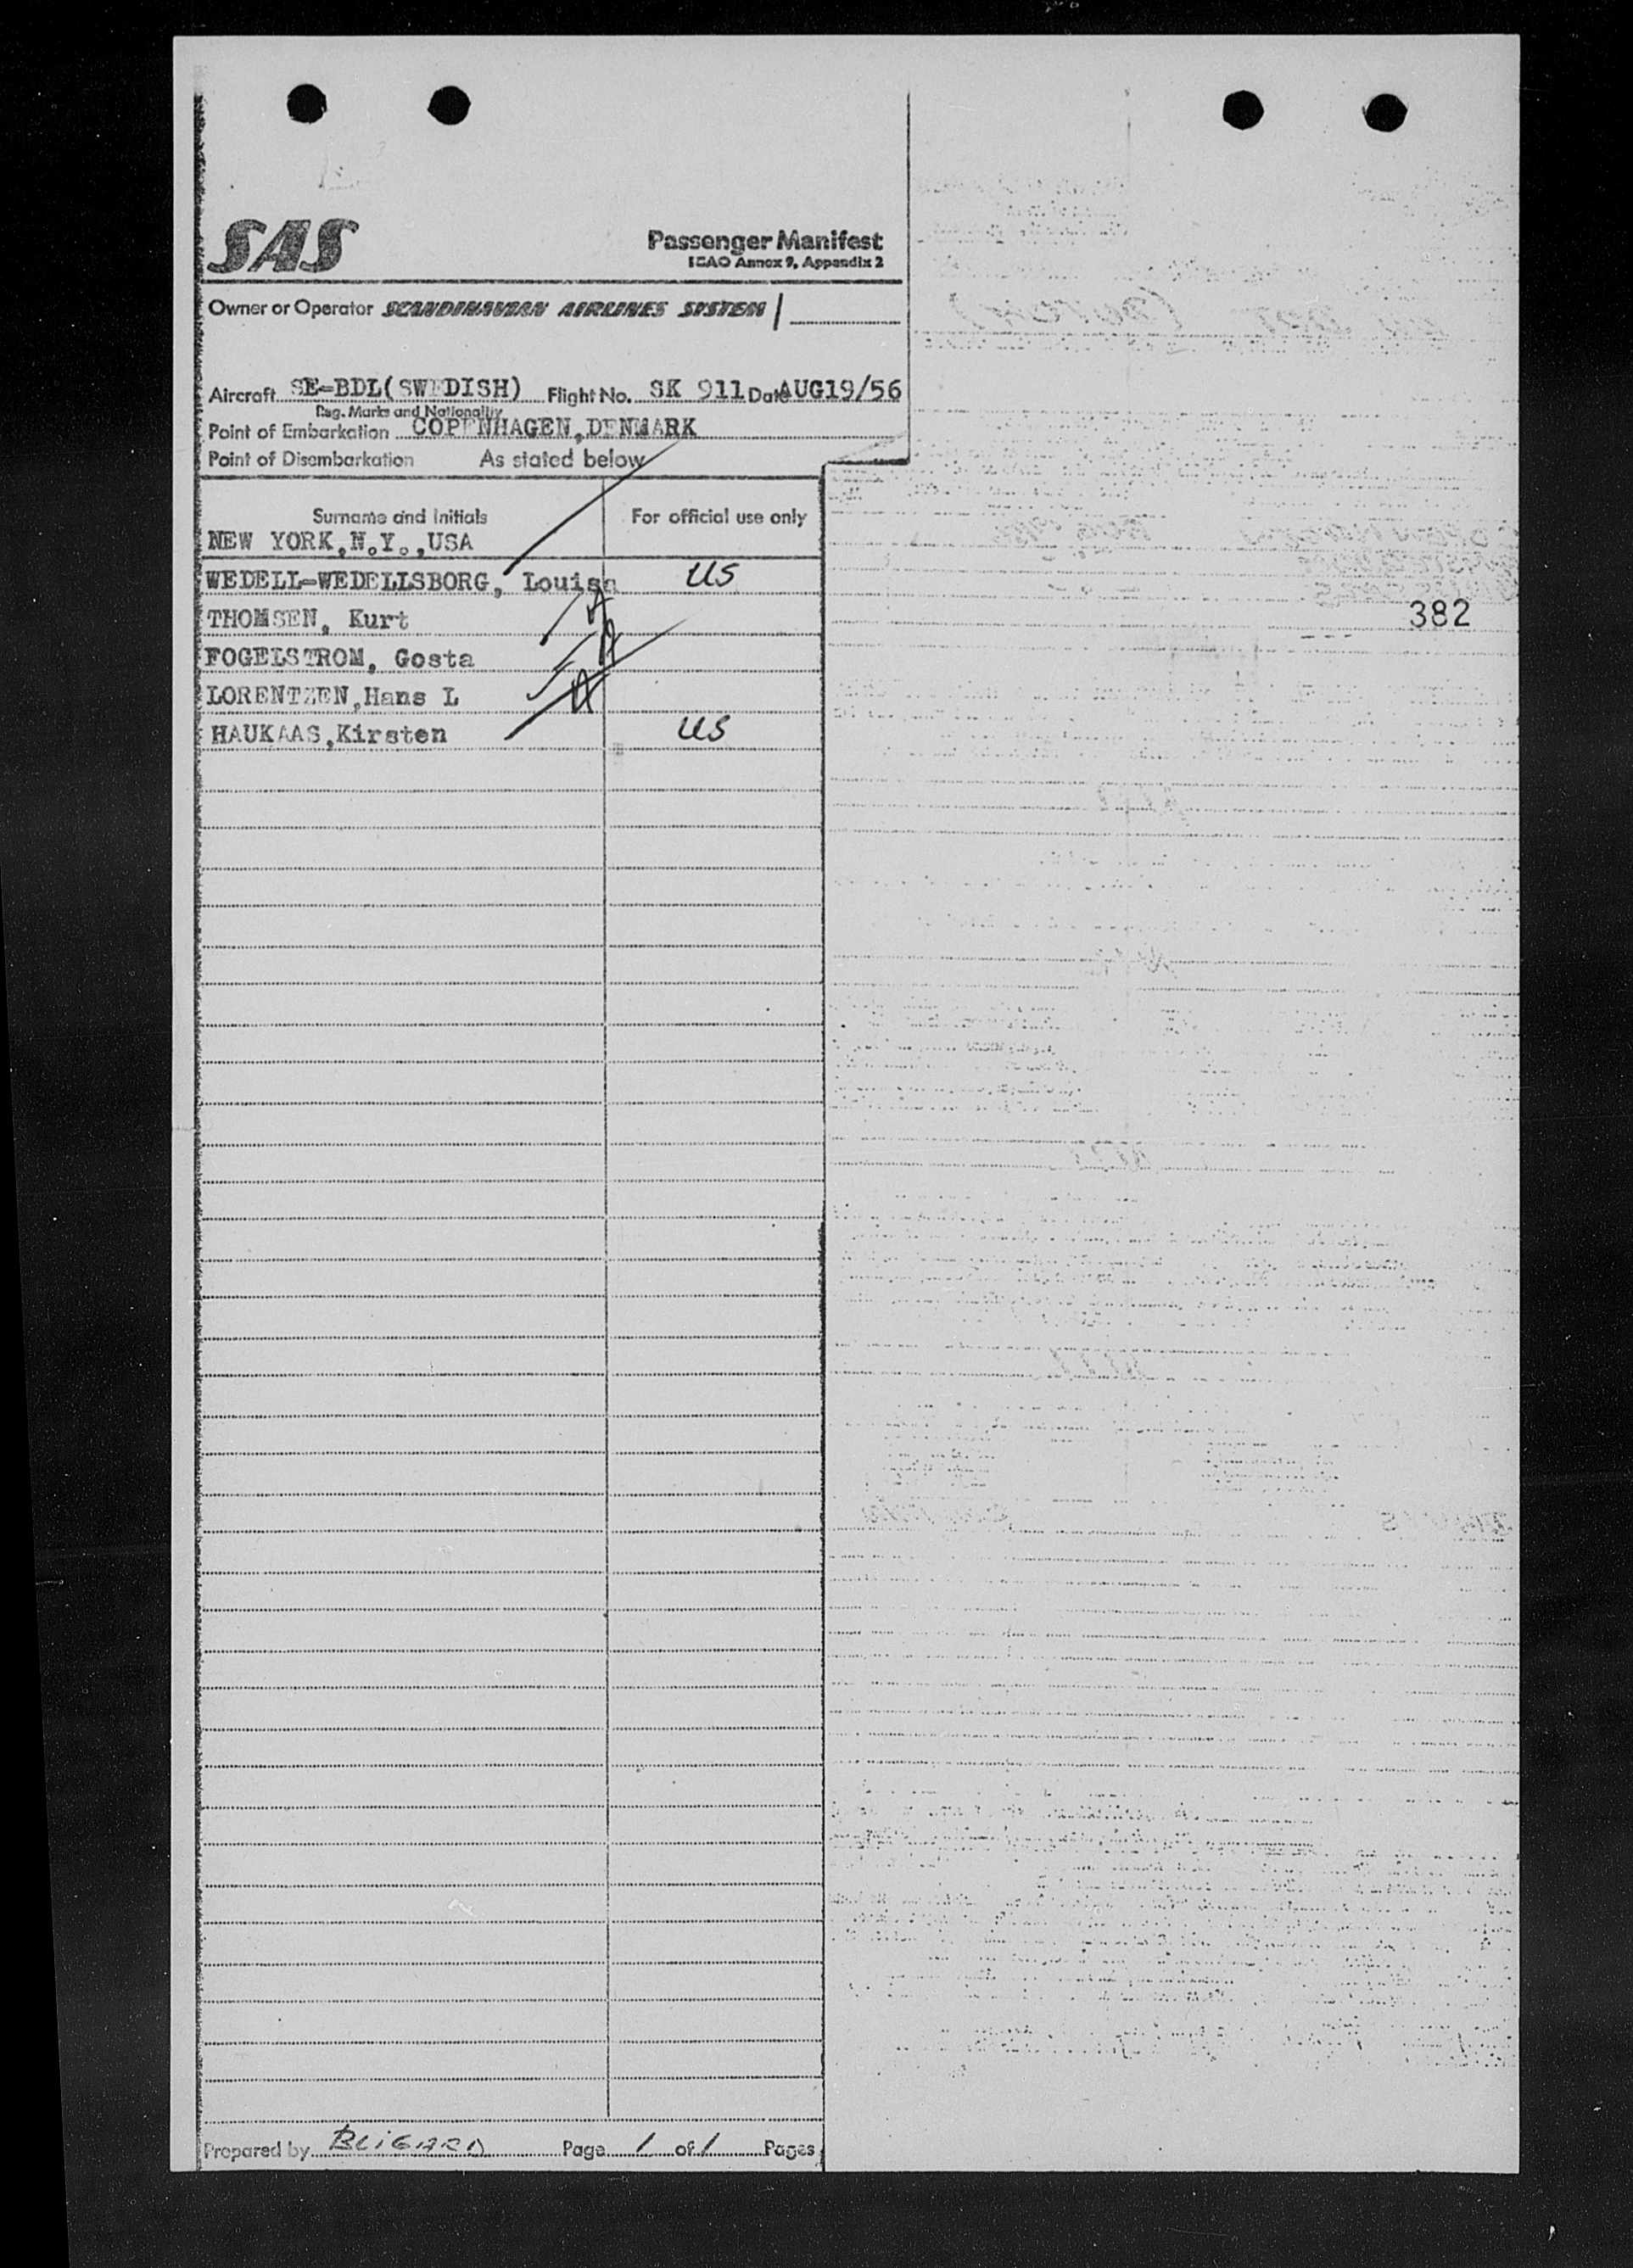 SAS
Passenger Manifest
ICAO Annex 9, Appendix 2
Owner or Operator SCANDINAVIAN AIRLINES SYSTEM
Aircraft SE-BDL(SWEDISH) Flight No. SK 911 Date AUG19/56
Reg. Marks and Nationality
Point of Embarkation COPENHAGEN,DENMARK
Point of Disembarkation As stated below
Surname and Initials For official use only
NEW YORK,N.Y.,USA
WEDELL-WEDELLSBORG, Louisa US
THOMSEN, Kurt A
382
FOGELSTROM, Gosta A
LORENTZEN,Hans L A
HAUKAAS,Kirsten US
Prepared by BLIGARD Page 1 of 1 Pages